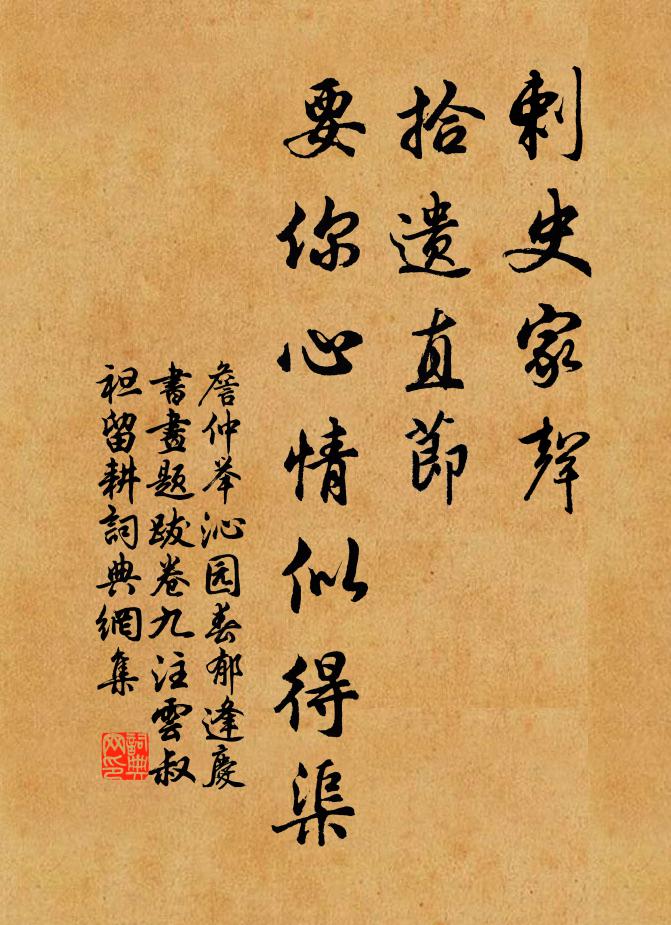 刺史家聲
拾遺直節
要你心情似得渠
詹仲举沁园春郁逢慶
書畫題跋卷九注雲叔
祖留耕詞典網集
詞典网印